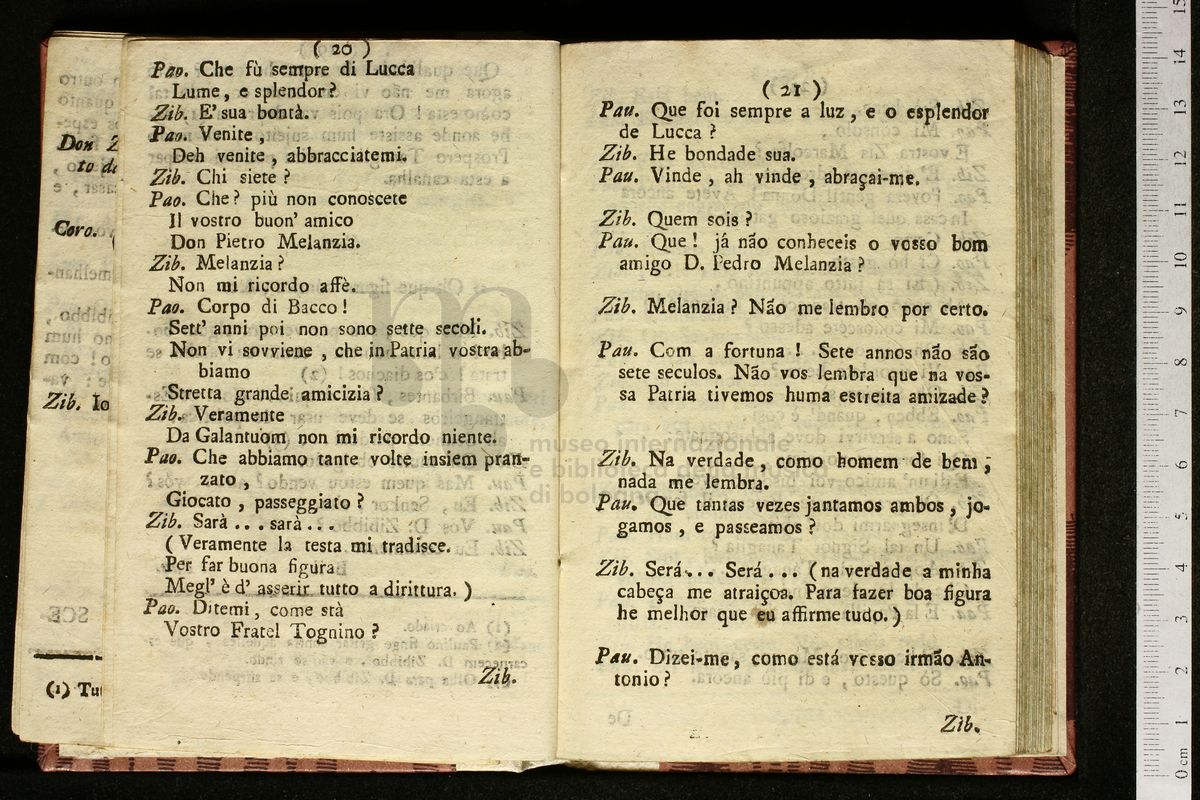 (20)
Pao. Che fù sempre di Lucca
Lume, e splendor?
Zib. E' sua bontà.
Pao. Venite,
Deh venite, abbracciatemi.
Zib. Chi siete?
Pao. Che? più non conoscete
Il vostro buon' amico
Don Pietro Melanzia.
Zib. Melanzia?
Non mi ricordo affè.
Pao. Corpo di Bacco!
Sett' anni poi non sono sette secoli.
Non vi sovviene, che in Patria vostra ab-
biamo
Stretta grande amicizia?
Zib. Veramente
Da Galantuom non mi ricordo niente.
Pao. Che abbiamo tante volte insiem pran-
zato,
Giocato, passeggiato?
Zib. Sarà... sarà...
(Veramente la testa mi tradisce.
Per far buona figura
Megl' è d' asserir tutto a dirittura.)
Pao. Ditemi, come stà
Vostro Fratel Tognino?
Zib.
Don Z
to de
Coro.
Zib. Io
(1) Tut
(21)
Pau. Que foi sempre a luz, e o esplendor
de Lucca?
Zib. He bondade sua.
Pau. Vinde, ah vinde, abraçai-me.
Zib. Quem sois?
Pau. Que! já não conheceis o vosso bom
amigo D. Pedro Melanzia?
Zib. Melanzia? Não me lembro por certo.
Pau. Com a fortuna! Sete annos não são
sete seculos. Não vos lembra que na vos-
sa Patria tivemos huma estreita amizade?
Zib. Na verdade, como homem de bem,
nada me lembra.
Pau. Que tantas vezes jantamos ambos, jo-
gamos, e passeamos?
Zib. Será... Será... (na verdade a minha
cabeça me atraiçoa. Para fazer boa figura
he melhor que eu affirme tudo.)
Pau. Dizei-me, como está vosso irmão An-
tonio?
Zib.
m
museo internazionale
e biblioteca della musica
di bologna
0 cm 1 2 3 4 5 6 7 8 9 10 11 12 13 14 15